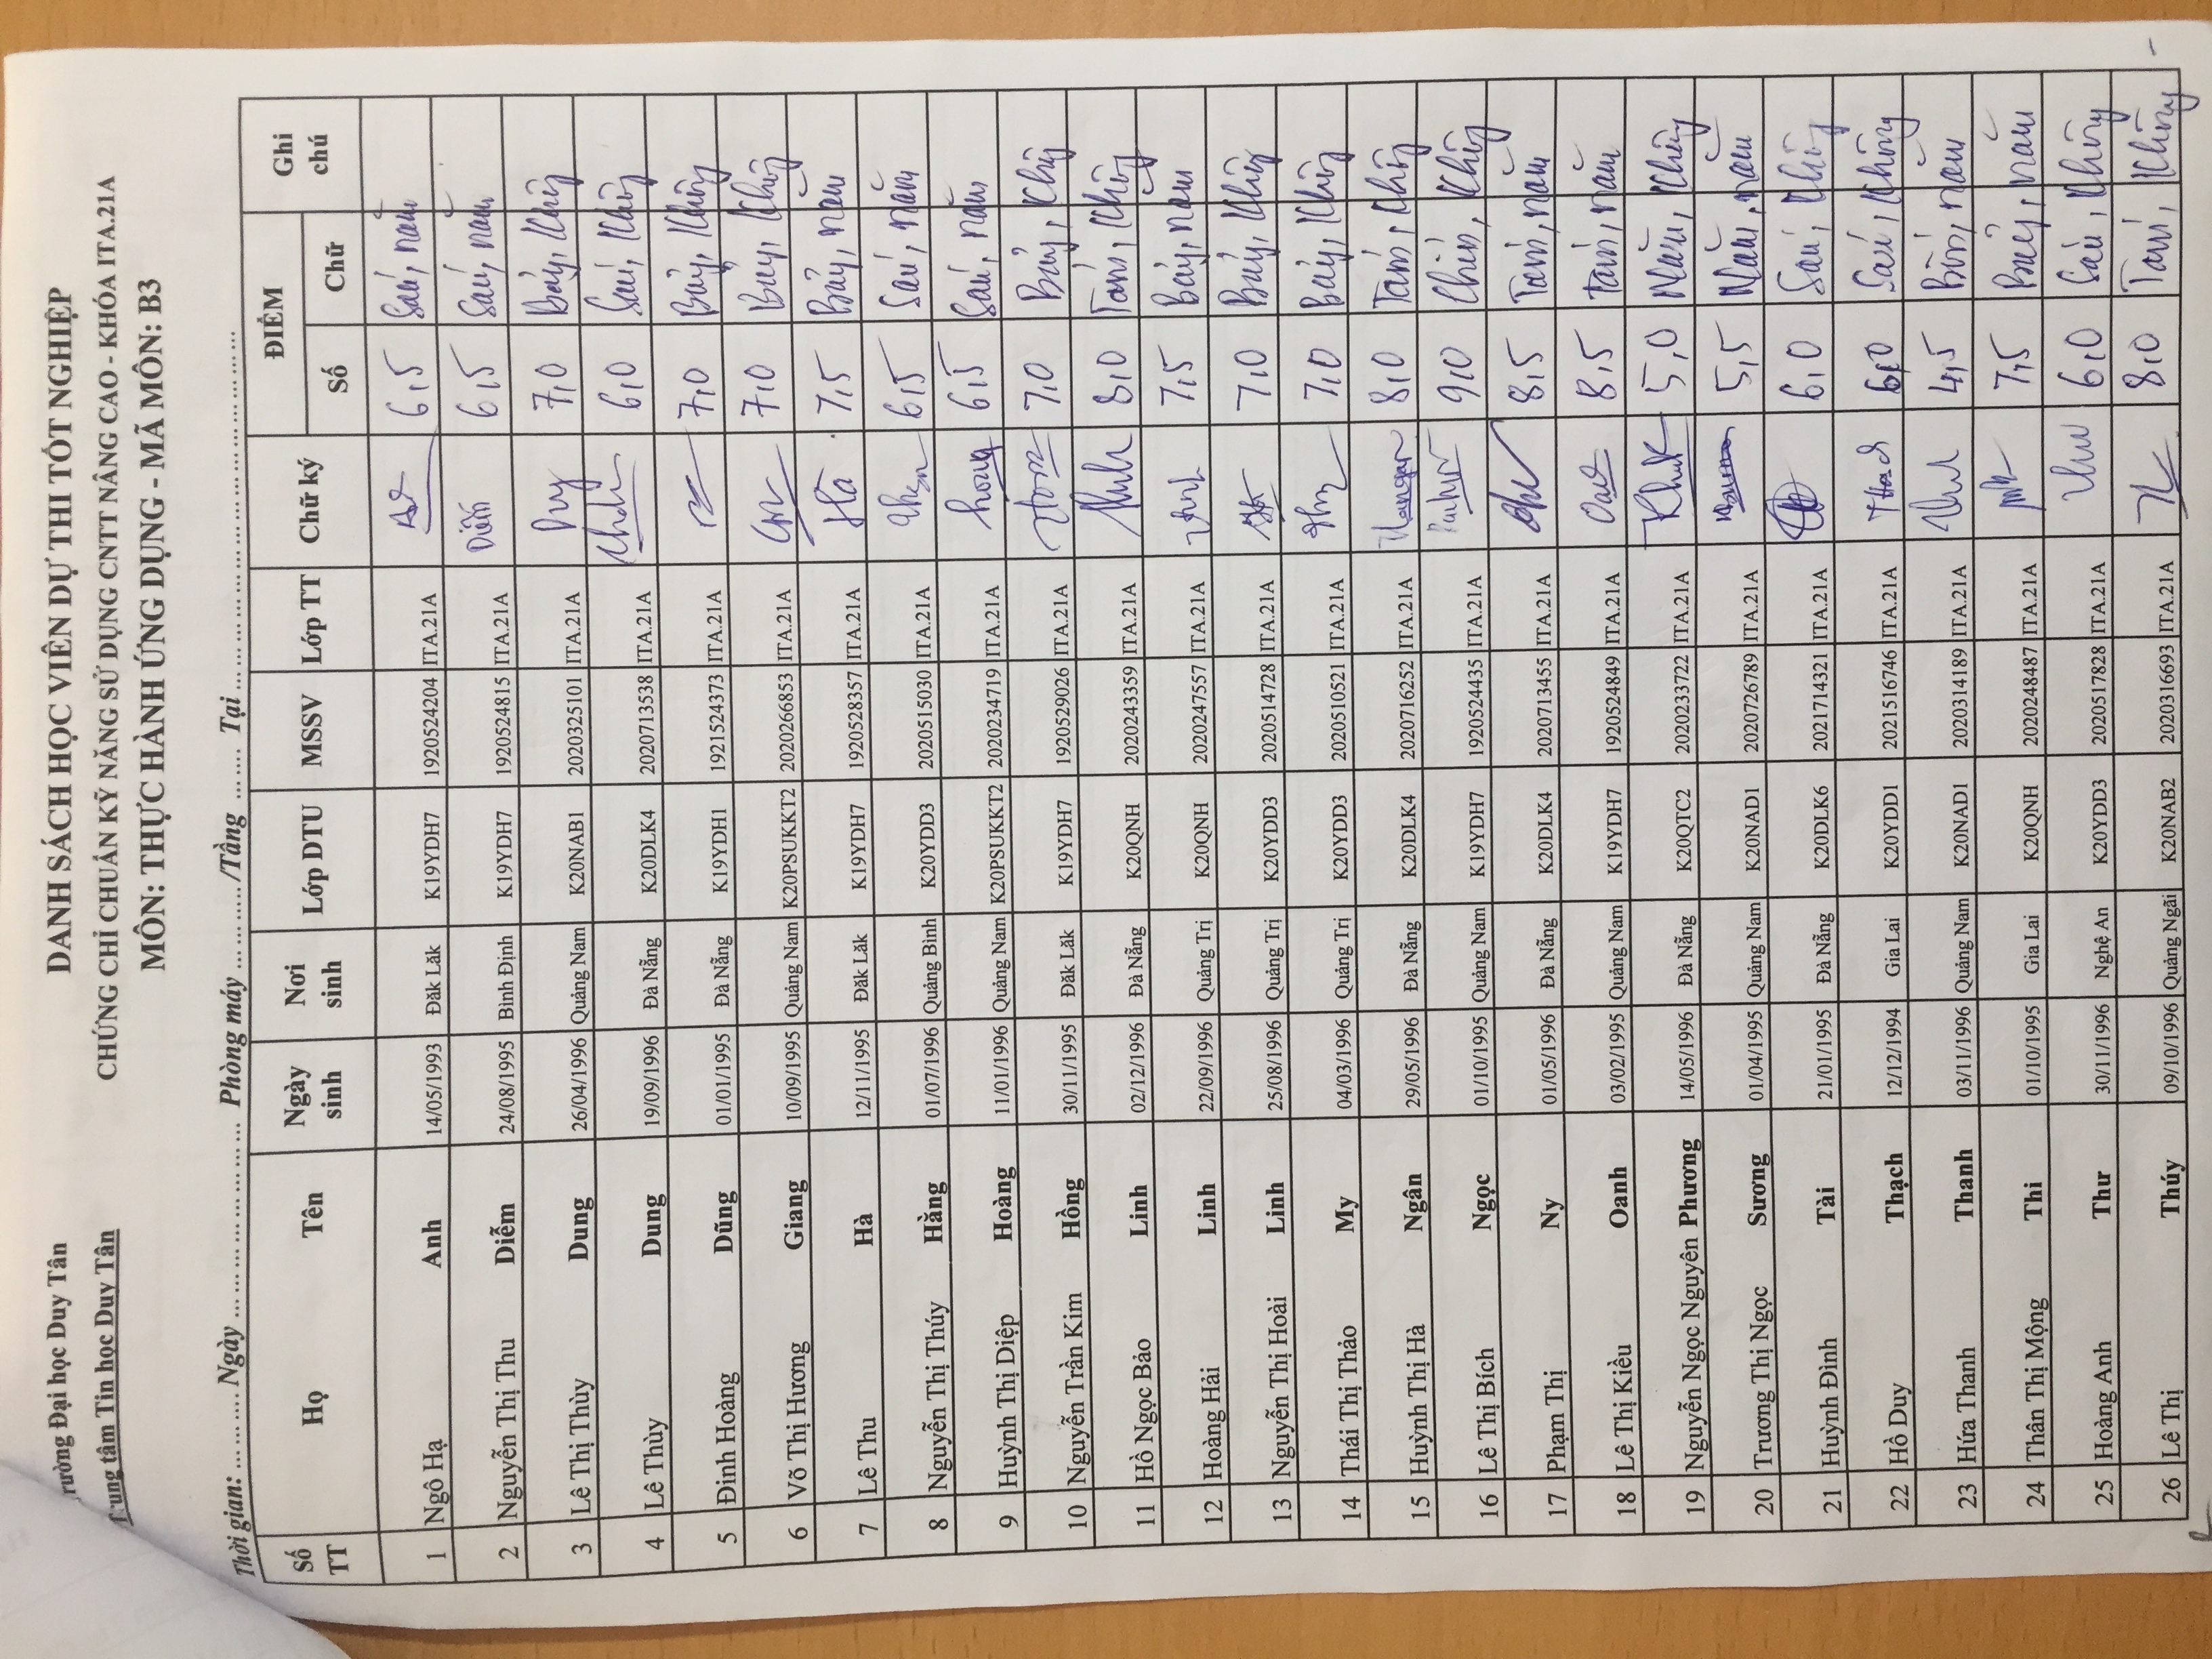 Trường Đại học Duy Tân
Trung tâm Tin học Duy Tân
DANH SÁCH HỌC VIÊN DỰ THI TỐT NGHIỆP
CHỨNG CHỈ CHUẨN KỸ NĂNG SỬ DỤNG CNTT NÂNG CAO - KHÓA ITA.21A
MÔN: THỰC HÀNH ỨNG DỤNG - MÃ MÔN: B3
Thời gian: ............ Ngày .............................. Phòng máy ............/Tầng ....... Tại ..............................
Số TT Họ Tên Ngày sinh Nơi sinh Lớp DTU MSSV Lớp TT Chữ ký ĐIỂM Số Chữ Ghi chú
1 Ngô Hạ Anh 14/05/1993 Đăk Lăk K19YDH7 1920524204 ITA.21A 6,5 Sáu, năm
2 Nguyễn Thị Thu Diễm 24/08/1995 Bình Định K19YDH7 1920524815 ITA.21A Diễm 6,5 Sáu, năm
3 Lê Thị Thùy Dung 26/04/1996 Quảng Nam K20NAB1 2020325101 ITA.21A 7,0 Bảy, không
4 Lê Thùy Dung 19/09/1996 Đà Nẵng K20DLK4 2020713538 ITA.21A 6,0 Sáu, không
5 Đinh Hoàng Dũng 01/01/1995 Đà Nẵng K19YDH1 1921524373 ITA.21A 7,0 Bảy, không
6 Võ Thị Hương Giang 10/09/1995 Quảng Nam K20PSUKKT2 2020266853 ITA.21A 7,0 Bảy, không
7 Lê Thu Hà 12/11/1995 Đăk Lăk K19YDH7 1920528357 ITA.21A Hà 7,5 Bảy, năm
8 Nguyễn Thị Thúy Hằng 01/07/1996 Quảng Bình K20YDD3 2020515030 ITA.21A 6,5 Sáu, năm
9 Huỳnh Thị Diệp Hoàng 11/01/1996 Quảng Nam K20PSUKKT2 2020234719 ITA.21A 6,5 Sáu, năm
10 Nguyễn Trần Kim Hồng 30/11/1995 Đăk Lăk K19YDH7 1920529026 ITA.21A 7,0 Bảy, không
11 Hồ Ngọc Bảo Linh 02/12/1996 Đà Nẵng K20QNH 2020243359 ITA.21A 8,0 Tám, không
12 Hoàng Hải Linh 22/09/1996 Quảng Trị K20QNH 2020247557 ITA.21A 7,5 Bảy, năm
13 Nguyễn Thị Hoài Linh 25/08/1996 Quảng Trị K20YDD3 2020514728 ITA.21A 7,0 Bảy, không
14 Thái Thị Thảo My 04/03/1996 Quảng Trị K20YDD3 2020510521 ITA.21A 7,0 Bảy, không
15 Huỳnh Thị Hà Ngân 29/05/1996 Đà Nẵng K20DLK4 2020716252 ITA.21A 8,0 Tám, không
16 Lê Thị Bích Ngọc 01/10/1995 Quảng Nam K19YDH7 1920524435 ITA.21A 9,0 Chín, không
17 Phạm Thị Ny 01/05/1996 Đà Nẵng K20DLK4 2020713455 ITA.21A 8,5 Tám, năm
18 Lê Thị Kiều Oanh 03/02/1995 Quảng Nam K19YDH7 1920524849 ITA.21A 8,5 Tám, năm
19 Nguyễn Ngọc Nguyên Phương 14/05/1996 Đà Nẵng K20QTC2 2020233722 ITA.21A 5,0 Năm, không
20 Trương Thị Ngọc Sương 01/04/1995 Quảng Nam K20NAD1 2020726789 ITA.21A 5,5 Năm, năm
21 Huỳnh Đình Tài 21/01/1995 Đà Nẵng K20DLK6 2021714321 ITA.21A 6,0 Sáu, không
22 Hồ Duy Thạch 12/12/1994 Gia Lai K20YDD1 2021516746 ITA.21A 6,0 Sáu, không
23 Hứa Thanh Thanh 03/11/1996 Quảng Nam K20NAD1 2020314189 ITA.21A 4,5 Bốn, năm
24 Thân Thị Mộng Thi 01/10/1995 Gia Lai K20QNH 2020248487 ITA.21A 7,5 Bảy, năm
25 Hoàng Anh Thư 30/11/1996 Nghệ An K20YDD3 2020517828 ITA.21A 6,0 Sáu, không
26 Lê Thị Thúy 09/10/1996 Quảng Ngãi K20NAB2 2020316693 ITA.21A 8,0 Tám, không